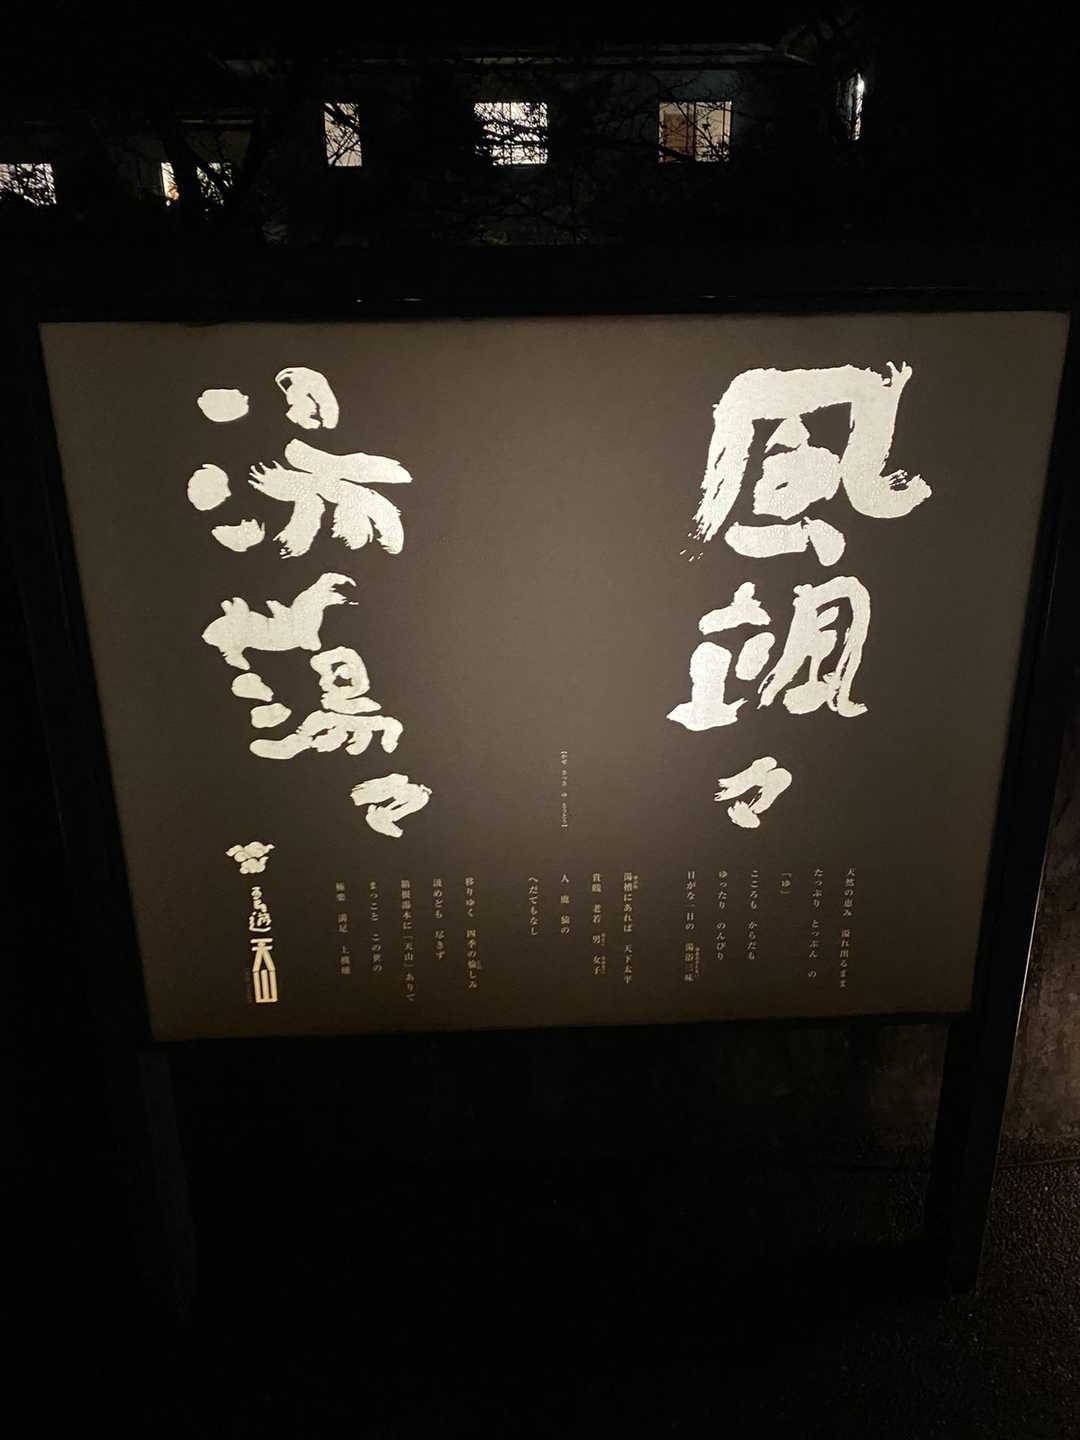 風颯々
湯蕩々
天然の恵み 溢れ出るまま
たっぷり とっぷん の
「ゆ」
こころも からだも
ゆったり のんびり
日がな一日の 湯浴三昧
湯槽にあれば 天下太平
貴賤 老若 男 女子
人 鹿 猿の
へだてもなし
移りゆく 四季の愉しみ
汲めども 尽きず
箱根湯本に「天山」ありて
まっこと この世の
極楽 満足 上機嫌
天山